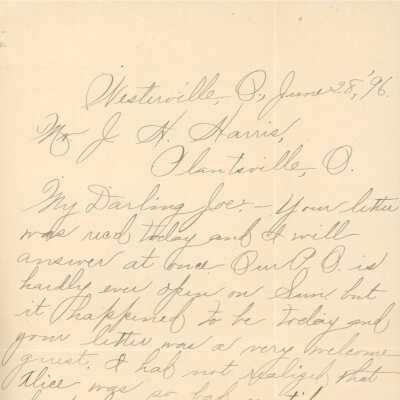 Westerville, O., June 28, '96.
Mr J. H. Harris,
Plantsville, O.
My Darling Joe:- Your letter
was recd today and I will
answer at once Our P.O. is
hardly ever open on Sun. but
it happened to be today and
your letter was a very welcome
guest. I had not realized that
Alice was so bad